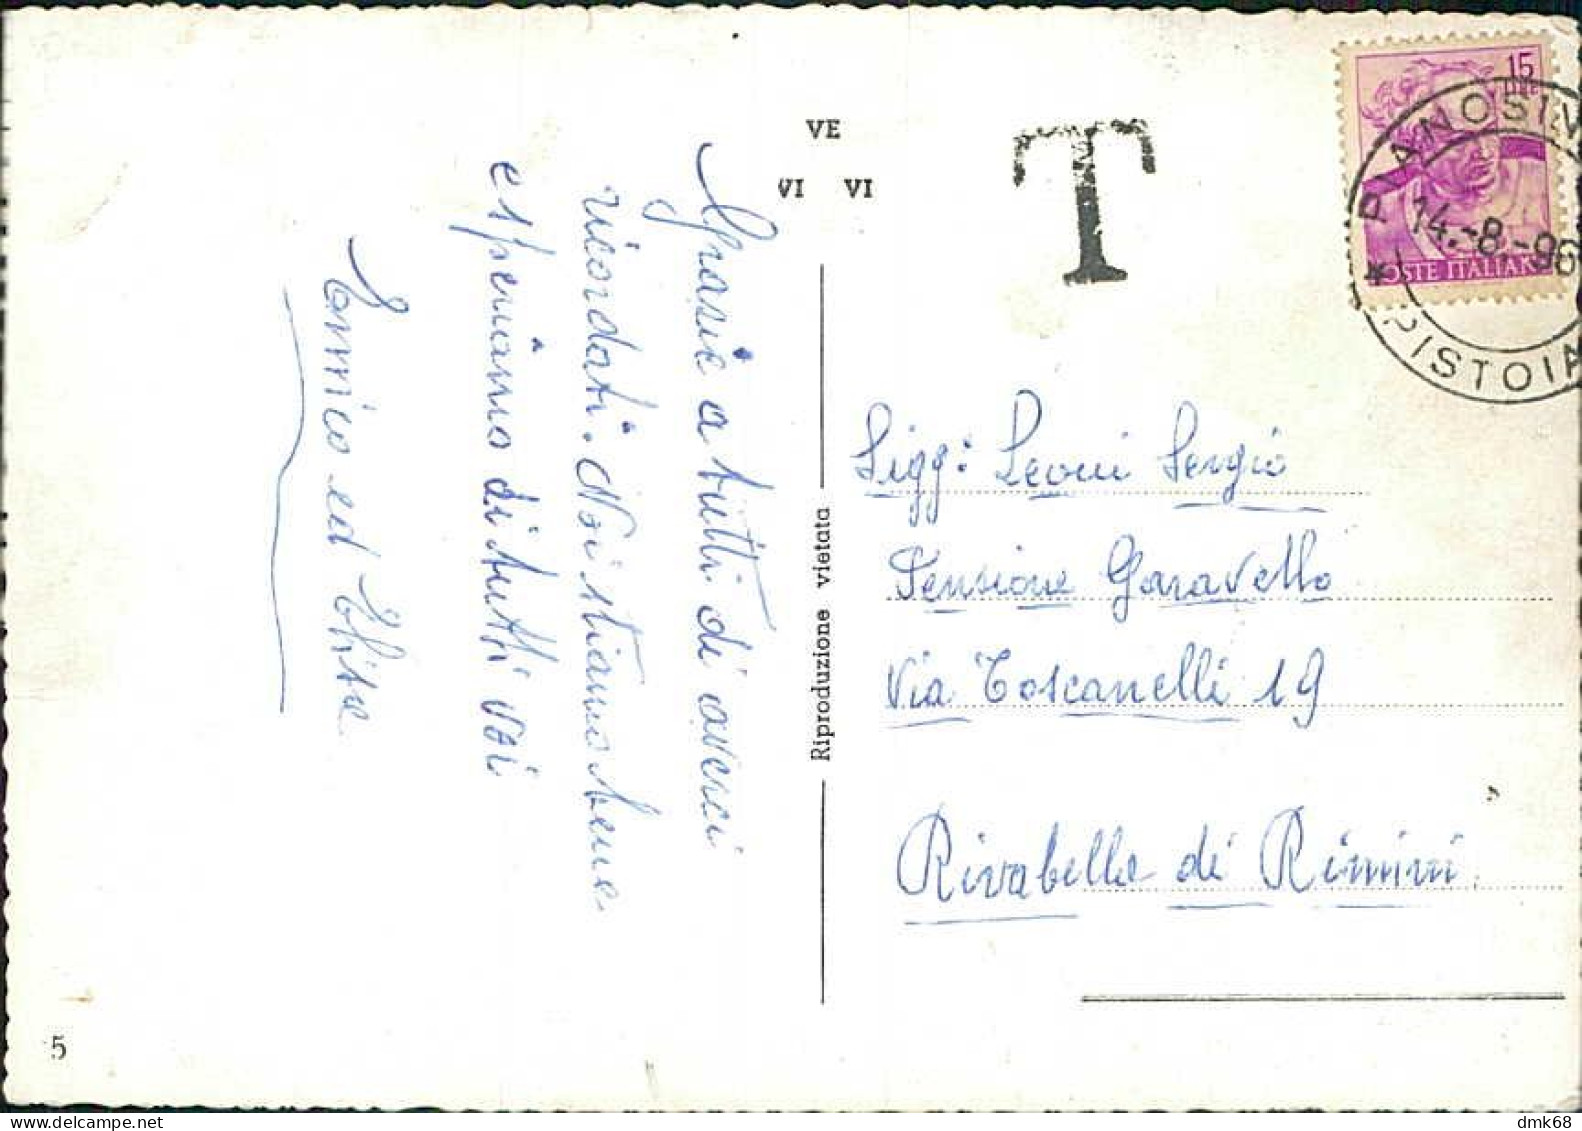 VE
VI VI
Grasie a tutti di averci
ricordati. Noi stiamo bene
e speriamo di tutti voi
Enrico ed Elise
Riproduzione vietata
T
15
LIRE
POSTE ITALIANE
PIANOSIN
14.-8.-96
PISTOIA
Sigg: Leoni Sergio
Pensione Garavello
Via Toscanelli 19
Rivabella di Rimini
5
delcampe.net
dmk68